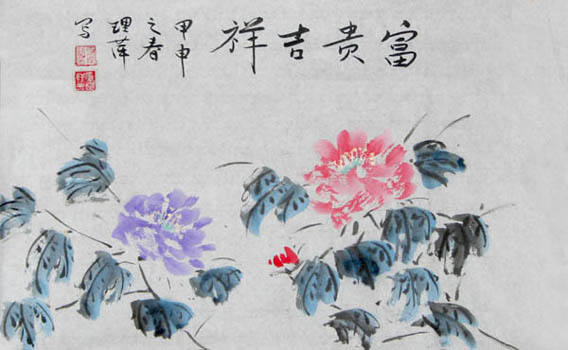 富贵吉祥
甲申
之春
理萍
写